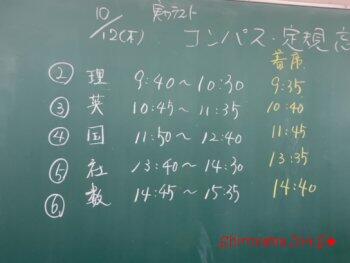 10/12(木) 実力テスト
コンパス・定規 忘
着席
② 理 9:40～10:30 9:35
③ 英 10:45～11:35 10:40
④ 国 11:50～12:40 11:45
⑤ 社 13:40～14:30 13:35
⑥ 数 14:45～15:35 14:40